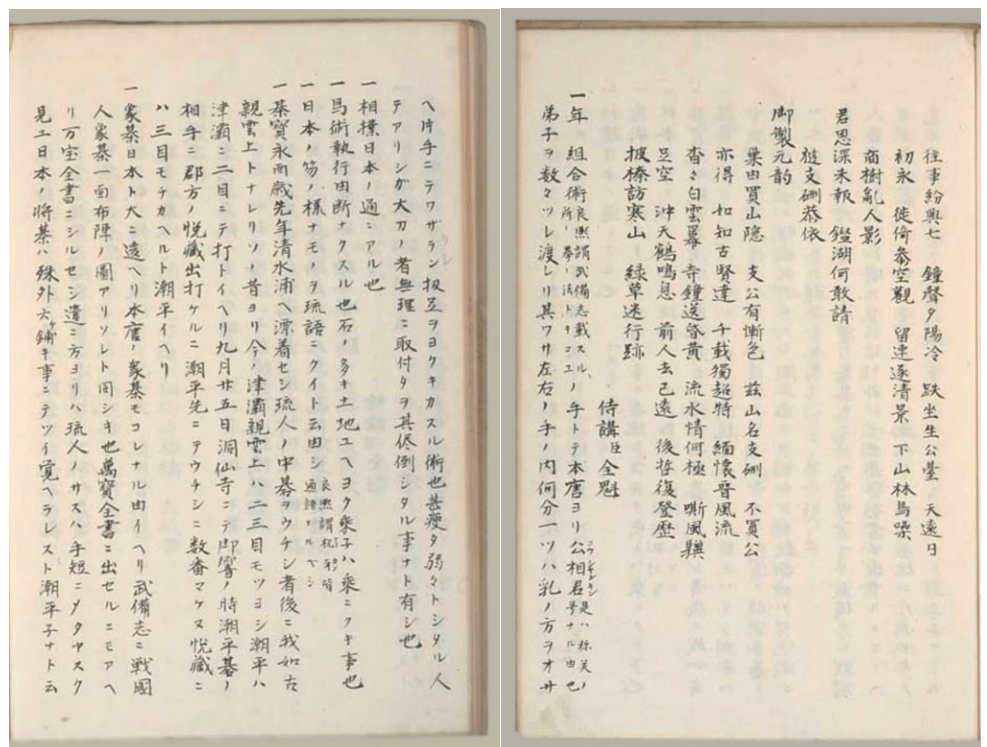 往事紛與七　鐘聲夕陽冷　趺坐生公臺　天遠日
初永　徙倚參空觀　留連逐清景　下山林鳥噪
商樹亂人影
君恩深未報　鑑湖何敢請
御製元韵
巢由買山隱　支公有慚色　茲山名支硎　不買公
亦得　如知古賢達　千載獨超特　緬懷晉風流
杳々白雲冪　寺鐘送昏黄　流水情何極　嘶風驥
足空　沖天鶴鳴息　前人去已遠　後挍復登歷
披榛訪寒山　緑草迷行跡
侍講臣全魁
一年　組合術良熙謂武備志載スル所ノ拳ノ法トキコユノ手トテ本唐ヨリ公相君是ハ称美ノ号ナル由也
弟子ヲ数々ツレ渡レリ其ワサ左右ノ手ノ内何分一ツハ乳ノ方ヲオサ
ヘ片手ニテワザヲシ扨足ヲヨクキカスル術也甚痩タ弱々トシタル人
テアリシガ大刀ノ者無理ニ取付タヲ其侭倒シタル事ナト有シ也
一相撲日本ノ通ニアル也
一馬術執行由断ナクスル也石ノ多キ土地ユヘヨク乗子ハ乗ニクキ事也
一日本ノ笏ノ様ナモノヲ琉語ニクイト云由シ
一碁寳永酉歳先年清水浦ヘ漂着セシ琉人ノ中碁ヲウチシ者後ニ我如古
親雲上トナレリソノ昔ヨリ今ノ津灞親雲上ハ二三目モツヨシ潮平ハ
津灞ニ二目ニテ打トイヘリ九月廿五日洞仙寺ニテ御饗ノ時潮平碁ノ
相手ニ郡方ノ悦藏出打ケルニ潮平先ニテウチシニ数番マケヌ悦藏ニ
ハ三目モチカヘルト潮平イヘリ
一象棊日本ト大ニ違ヘリ本唐ノ象棊モコレナル由イヘリ武備志ニ戦國
人象棊一面布陣ノ圖アリソレト同シキ也萬寳全書ニ出セルニモアヘ
リ万宝全書ニシルセシ遣ニ方ヨリハ琉人ノサスハ手短ニタヤスク
見エ日本ノ将棊ハ殊外六ケ鋪キ事ニテツイ覚ヘラレスト潮平子ナト云